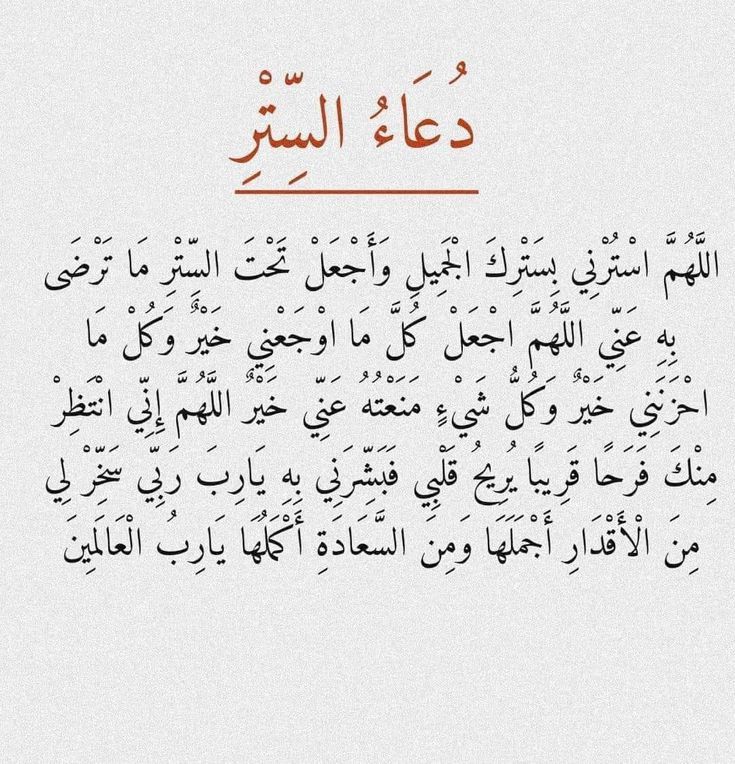 دُعَاءُ السِّتْرِ
اللَّهُمَّ اسْتُرْنِي بِسَتْرِكَ الْجَمِيلِ وَأَجْعَلْ تَحْتَ السِّتْرِ مَا تَرْضَى
بِهِ عَنِّي اللَّهُمَّ اجْعَلْ كُلَّ مَا اوْجَعْنِي خَيْرٌ وَكُلْ مَا
احْزَنَنِي خَيْرٌ وَكُلُّ شَيْءٍ مَنَعْتُهُ عَنِّي خَيْرٌ اللَّهُمَّ إِنِّي انْتَظِرْ
مِنْكَ فَرَحًا قَرِيبًا يُرِيحُ قَلْبِي فَبَشِّرَنِي بِهِ يَارِبَ رَبِّي سَخِّرْ لِي
مِنَ الْأَقْدَارِ أَجْمَلَهَا وَمِنَ السَّعَادَةِ أَكْمَلُهَا يَارِبُ الْعَالَمِينَ